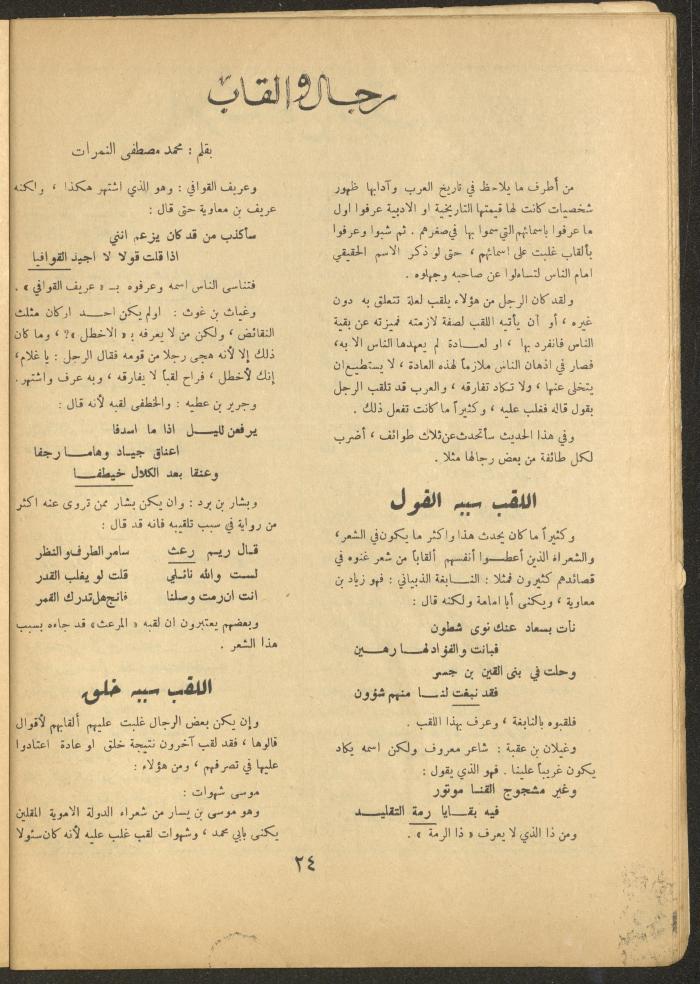 رجال والقاب
بقلم : محمد مصطفى النمرات
من أطرف ما يلاحظ في تاريخ العرب وآدابها ظهور
شخصيات كانت لها قيمتها التاريخية او الادبية عرفوا اول
ما عرفوا باسمائهم التي سموا بها في صغرهم . ثم شبوا وعرفوا
بألقاب غلبت على اسمائهم ، حتى لو ذكر الاسم الحقيقي
امام الناس لتساءلوا عن صاحبه وجهلوه .
ولقد كان الرجل من هؤلاء يلقب لعلة تتعلق به دون
غيره ، أو أن يأتيه اللقب لصفة لازمته فميزته عن بقية
الناس فانفرد بها ، او لعادة لم يعهدها الناس الا به،
فصار في اذهان الناس ملازماً لهذه العادة ، لا يستطيع ان
يتخلى عنها ، ولا تكاد تفارقه ، والعرب قد تلقب الرجل
بقول قاله فغلب عليه ، وكثيراً ما كانت تفعل ذلك .
وفي هذا الحديث سأتحدث عن ثلاث طوائف ، أضرب
لكل طائفة من بعض رجالها مثلا .
اللقب سببه القول
وكثيراً ما كان يحدث هذا واكثر ما يكون في الشعر،
والشعراء الذين أعطوا أنفسهم ألقاباً من شعر غنوه في
قصائدهم كثيرون فمثلا : النابغة الذبياني : فهو زياد بن
معاوية ، ويكنى أبا امامة ولكنه قال :
نأت بسعاد عنك نوى شطون
فبانت والفؤاد لها رهين
وحلت في بنى القين بن جسر
فقد نبغت لنا منهم شؤون
فلقبوه بالنابغة ، وعرف بهذا اللقب .
وغيلان بن عقبة : شاعر معروف ولكن اسمه يكاد
يكون غريباً علينا . فهو الذي يقول :
وغير مشجوج القفا موتور
فيه بقايا رمة التقليد
ومن ذا الذي لا يعرف « ذا الرمة » .
وعريف القوافي : وهو الذي اشتهر هكذا ، ولكنه
عريف بن معاوية حتى قال :
سأكذب من قد كان يزعم انني
اذا قلت قولا لا اجيد القوافيا
فتناسى الناس اسمه وعرفوه بـ « عريف القوافي » .
وغياث بن غوث : اولم يكن احد اركان مثلث
النقائض ، ولكن من لا يعرفه بـ « الاخطل »؟ ، وما كان
ذلك إلا لأنه هجى رجلا من قومه فقال الرجل : يا غلام،
إنك لأخطل ، فراح لقباً لا يفارقه ، وبه عرف واشتهر.
وجرير بن عطيه : والخطفى لقبه لأنه قال :
يرفعن لليل اذا ما اسدفا
اعناق جياد وهاما رجفا
وعنقا بعد الكلال خيطفا
وبشار بن برد : وان يكن بشار ممن تروى عنه اكثر
من رواية في سبب تلقيبه فانه قد قال :
قال ريم رعث ساحر الطرف والنظر
لست والله نائلي قلت لو يغلب القدر
انت ان رمت وصلنا فانج هل تدرك القمر
وبعضهم يعتبرون ان لقبه « المرعث » قد جاءه بسبب
هذا الشعر .
اللقب سببه خلق
وإن يكن بعض الرجال غلبت عليهم ألقابهم لأقوال
قالوها ، فقد لقب آخرون نتيجة خلق او عادة اعتادوا
عليها في تصرفهم ، ومن هؤلاء :
موسى شهوات :
وهو موسى بن يسار من شعراء الدولة الاموية المقلين
يكنى بابي محمد ، وشهوات لقب غلب عليه لأنه كان سئولا
٢٤